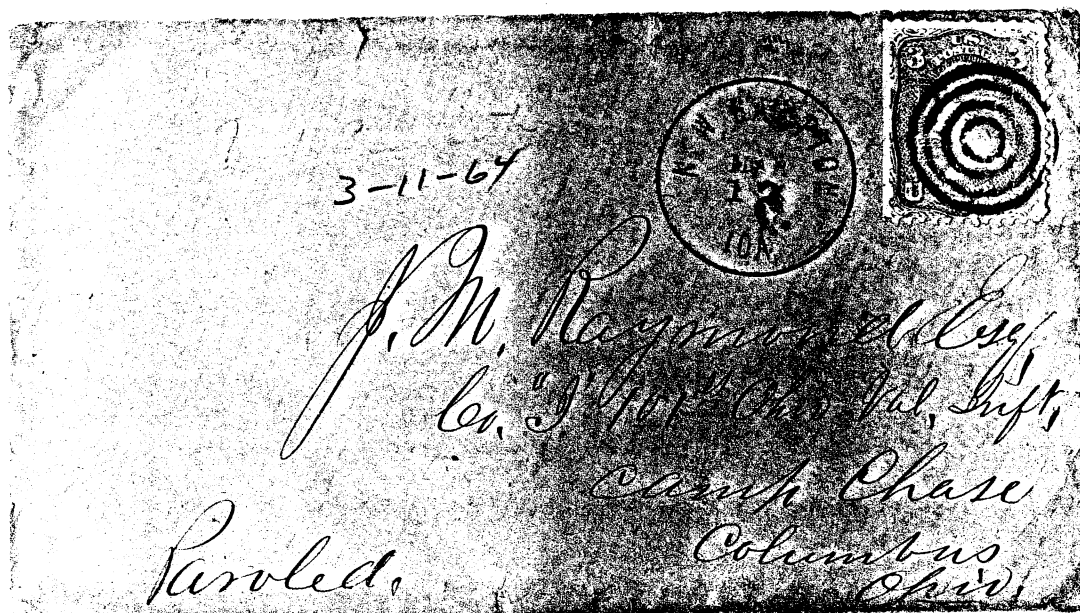 3-11-64
NEW
IOA.
J. M. Raymond Esq,
Co. "I" 101st Ohio Vol, Inft,
Camp Chase
Columbus
Ohio.
Paroled.